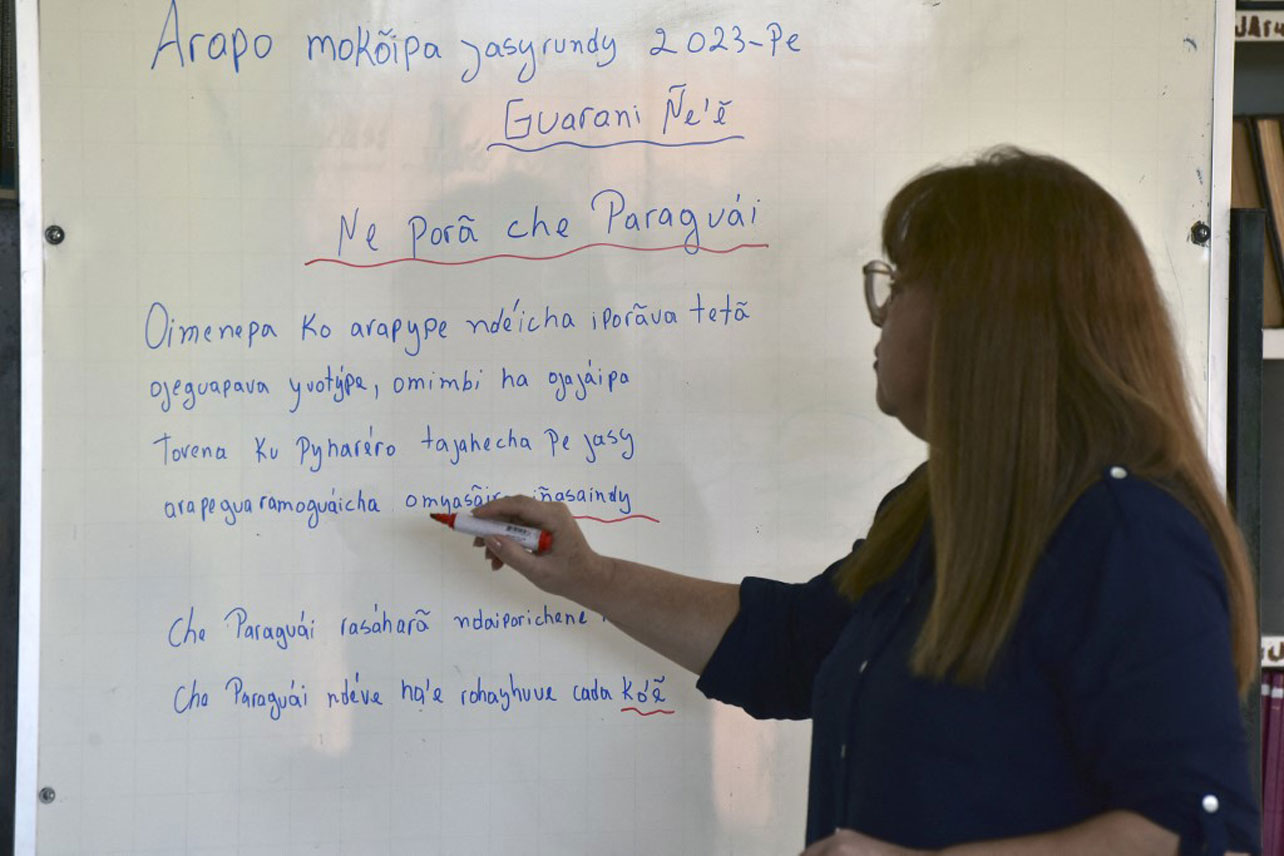 Arapo mokõipa jasyrundy 2023-Pe
Guarani Ñe'ẽ
Ne porã che Paraguái
Oimenepa Ko arapype ndéicha iporãva tetã
ojeguapava yvotýpe, omimbi ha ojajáipa
Tovena Ku Pyharéro tajahecha Pe jasy
arapegua ramoguáicha iñasaindy
Che Paraguái rasáharã ndaiporichene
Che Paraguái ndéve ha'e rohayhuve cada Ko'ẽ